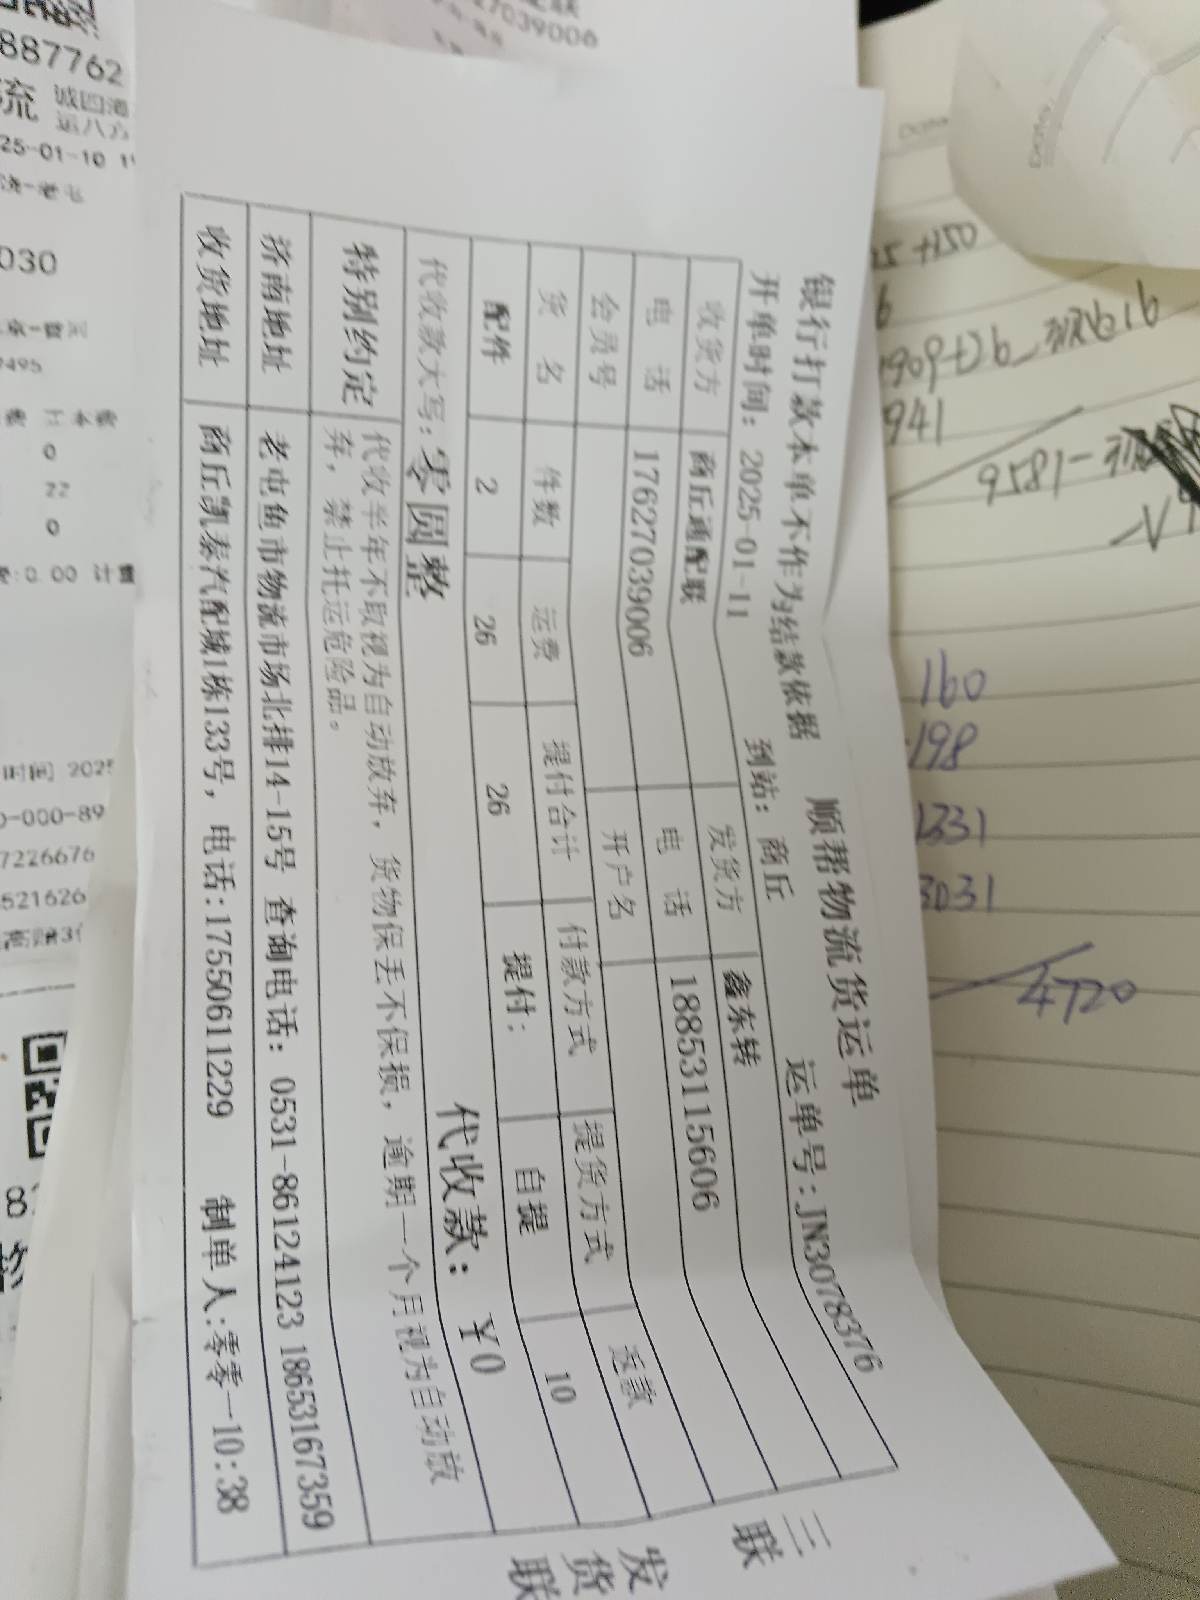 顺帮物流货运单
银行打款本单不作为结款依据
运单号:JN30783376
开单时间: 2025-01-11 到站: 商丘
收货方 商丘通配联 发货方 鑫东转
电 话 17627039006 电 话 18853115606
会员号 开户名
货 名 件数 运费 提付合计 付款方式 提货方式 返款
配件 2 26 26 提付: 自提 10
代收款大写: 零圆整 代收款: ¥0
特别约定 代收半年不取视为自动放弃, 货物保丢不保损, 逾期一个月视为自动放
弃, 禁止托运危险品。
济南地址 老屯鱼市物流市场北排14-15号 查询电话: 0531-86124123 18653167359
收货地址 商丘凯泰汽配城1栋133号, 电话:17550611229 制单人:零零一10:38
三联
发货联
27039006
887762
流
诚四海
运八方
25-01-10
030
7495
0
22
0
:0.00 计重
时间 2025
0-000-89
7226676
521626
5 +150
6
941
160
198
1331
3031
4720